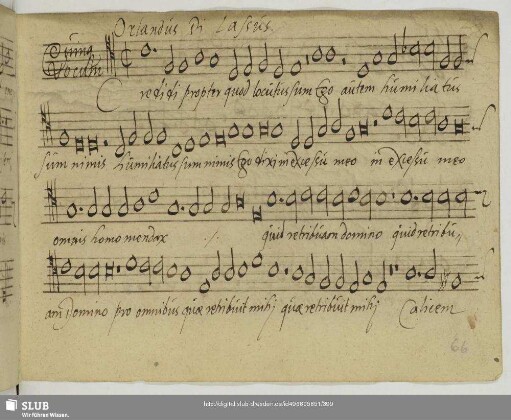 Orlandus Di Lassus.
Credidi propter quod locutus sum Ego autem humiliatus
sum nimis humiliatus sum nimis Ego dixi in excessu meo in excessu meo
omnis homo mendax ./. quid retribuam domino quid retribu,,
am Domino pro omnibus quæ retribuit mihj quæ retribuit mihj Calicem
66
SLUB
Wir führen Wissen.